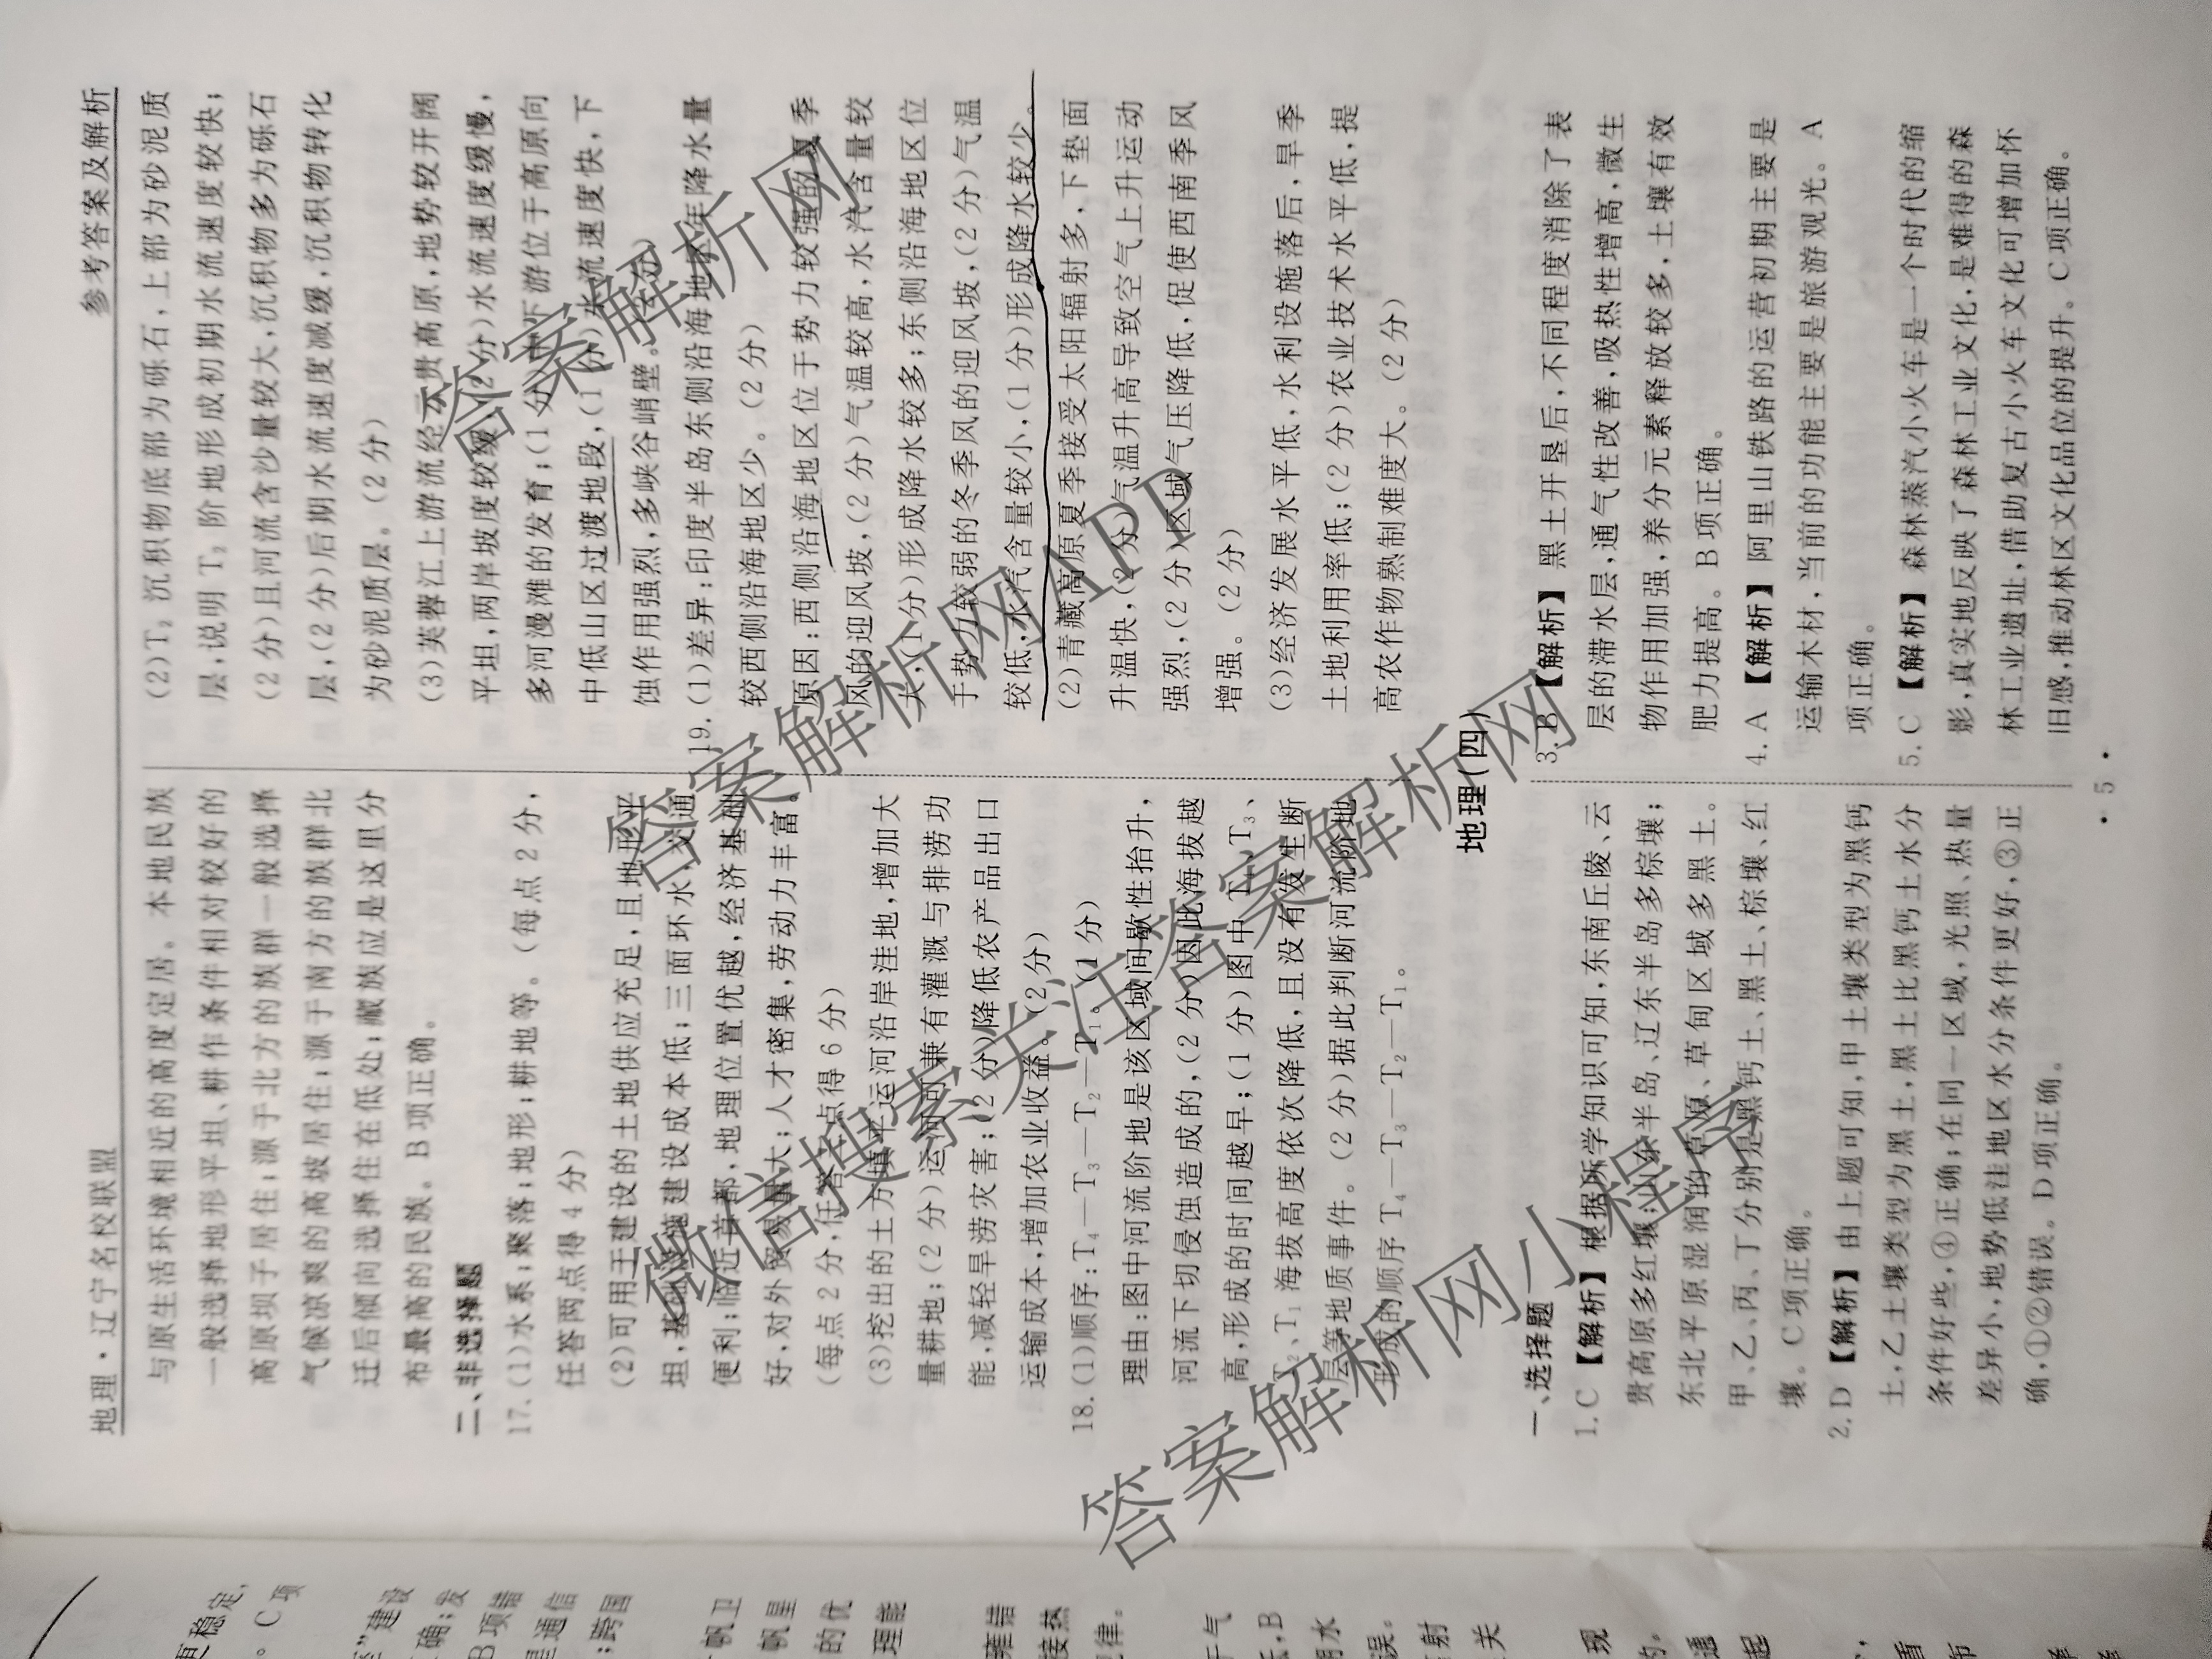 地理·辽宁名校联盟
参考答案及解析
与原生活环境相近的高度定居。本地民族
一般选择地形平坦、耕作条件相对较好的
高原坝子居住;源于北方的族群一般选择
气候凉爽的高坡居住;源于南方的族群北
迁后倾向选择住在低处;藏族应是这里分
布最高的民族。B项正确。
二、非选择题
17.(1)水系;聚落;地形;耕地等。(每点2分,
任答两点得4分)
(2)可用于建设的土地供应充足,且地形平
坦,基础设施建设成本低;三面环水,交通
便利;临近首都,地理位置优越,经济基础
好,对外贸易量大;人才密集,劳动力丰富。
(每点2分,任答三点得6分)
(3)挖出的土方填平运河沿岸洼地,增加大
量耕地;(2分)运河可兼有灌溉与排涝功
能,减轻旱涝灾害;(2分)降低农产品出口
运输成本,增加农业收益。(2分)
18.(1)顺序:T₄—T₃—T₂—T₁。(1分)
理由:图中河流阶地是该区域间歇性抬升,
河流下切侵蚀造成的,(2分)因此海拔越
高,形成的时间越早;(1分)图中T₄、T₃、
T₂、T₁海拔高度依次降低,且没有发生断
层等地质事件。(2分)据此判断河流阶地
形成的顺序T₄—T₃—T₂—T₁。
(2)T₂沉积物底部为砾石,上部为砂泥质
层,说明T₂阶地形成初期水流速度较快;
(2分)且河流含沙量较大,沉积物多为砾石
层,(2分)后期水流速度减缓,沉积物转化
为砂泥质层。(2分)
(3)芙蓉江上游流经云贵高原,地势较开阔
平坦,两岸坡度较缓,(2分)水流速度缓慢,
多河漫滩的发育;(1分)下游位于高原向
中低山区过渡地段,(1分)水流速度快,下
蚀作用强烈,多峡谷峭壁。
19.(1)差异:印度半岛东侧沿海地区年降水量
较西侧沿海地区少。(2分)
原因:西侧沿海地区位于势力较强的夏季
风的迎风坡,(2分)气温较高,水汽含量较
大,(1分)形成降水较多;东侧沿海地区位
于势力较弱的冬季风的迎风坡,(2分)气温
较低,水汽含量较小,(1分)形成降水较少。
(2)青藏高原夏季接受太阳辐射多,下垫面
升温快,(2分)气温升高导致空气上升运动
强烈,(2分)区域气压降低,促使西南季风
增强。(2分)
(3)经济发展水平低,水利设施落后,旱季
土地利用率低;(2分)农业技术水平低,提
高农作物熟制难度大。(2分)
地理(四)
一、选择题
1.C 【解析】根据所学知识可知,东南丘陵、云
贵高原多红壤;山东半岛、辽东半岛多棕壤;
东北平原湿润的草原、草甸区域多黑土。
甲、乙、丙、丁分别是黑钙土、黑土、棕壤、红
壤。C项正确。
2.D 【解析】由上题可知,甲土壤类型为黑钙
土,乙土壤类型为黑土,黑土比黑钙土水分
条件好些,④正确;在同一区域,光照、热量
差异小,地势低洼地区水分条件更好,③正
确,①②错误。D项正确。
3.B 【解析】黑土开垦后,不同程度消除了表
层的滞水层,通气性改善,吸热性增高,微生
物作用加强,养分元素释放较多,土壤有效
肥力提高。B项正确。
4.A 【解析】阿里山铁路的运营初期主要是
运输木材,当前的功能主要是旅游观光。A
项正确。
5.C 【解析】森林蒸汽小火车是一个时代的缩
影,真实地反映了森林工业文化,是难得的森
林工业遗址,借助复古小火车文化可增加怀
旧感,推动林区文化品位的提升。C项正确。
·5·
答案解析网
答案解析网APP
微信搜索关注答案解析网
答案解析网小程序